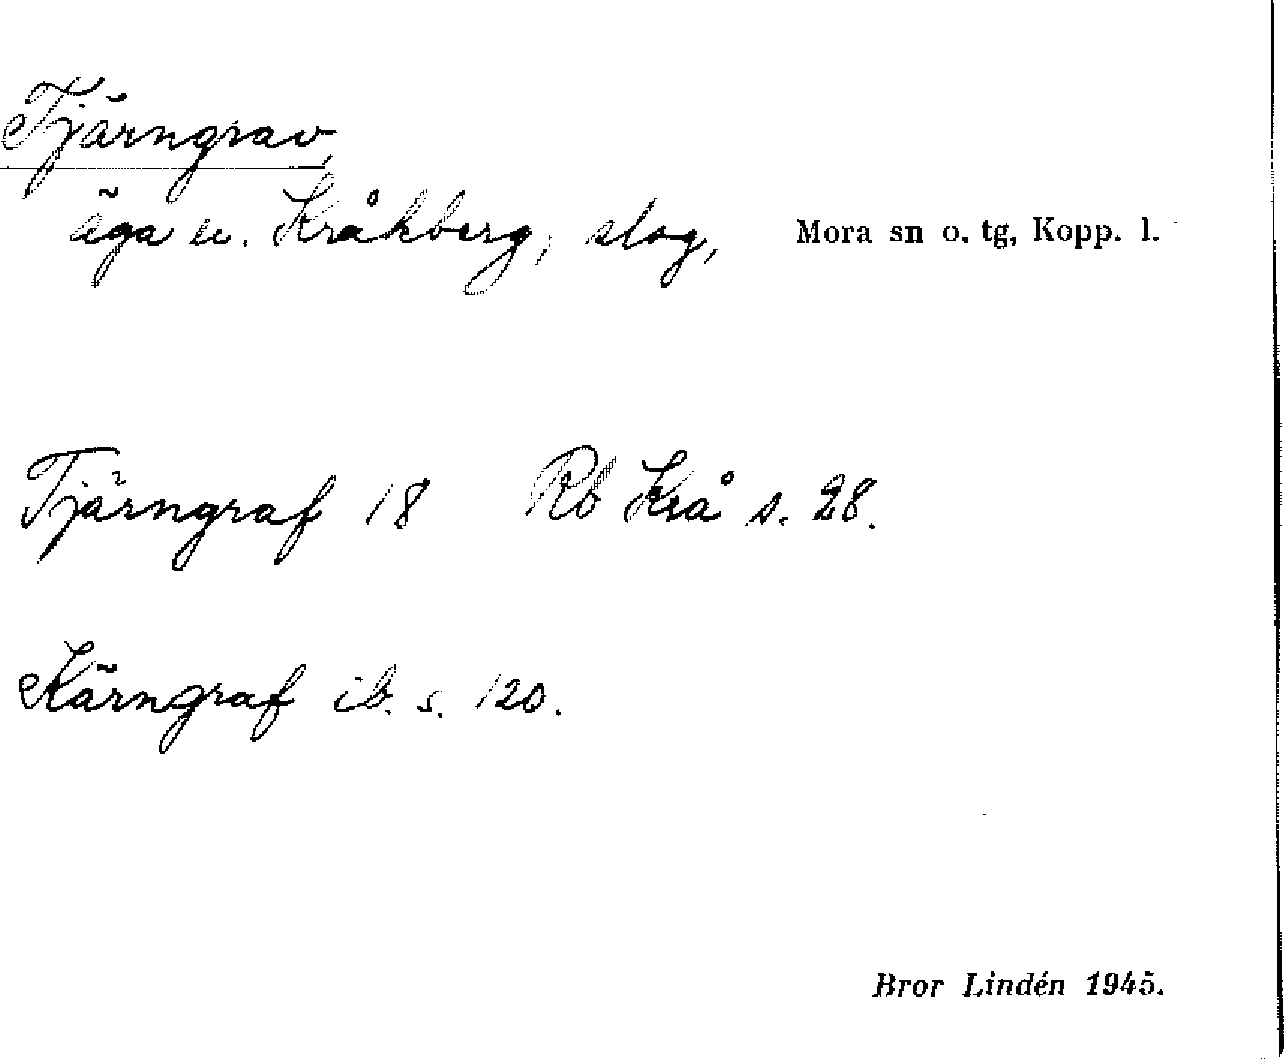 Tjärngrav,
äga u. Kråkberg, slog, Mora sn o. tg, Kopp. l.
Tjärngraf 18 Rb Krå s. 28.
Kärngraf ib. s. 120.
Bror Lindén 1945.